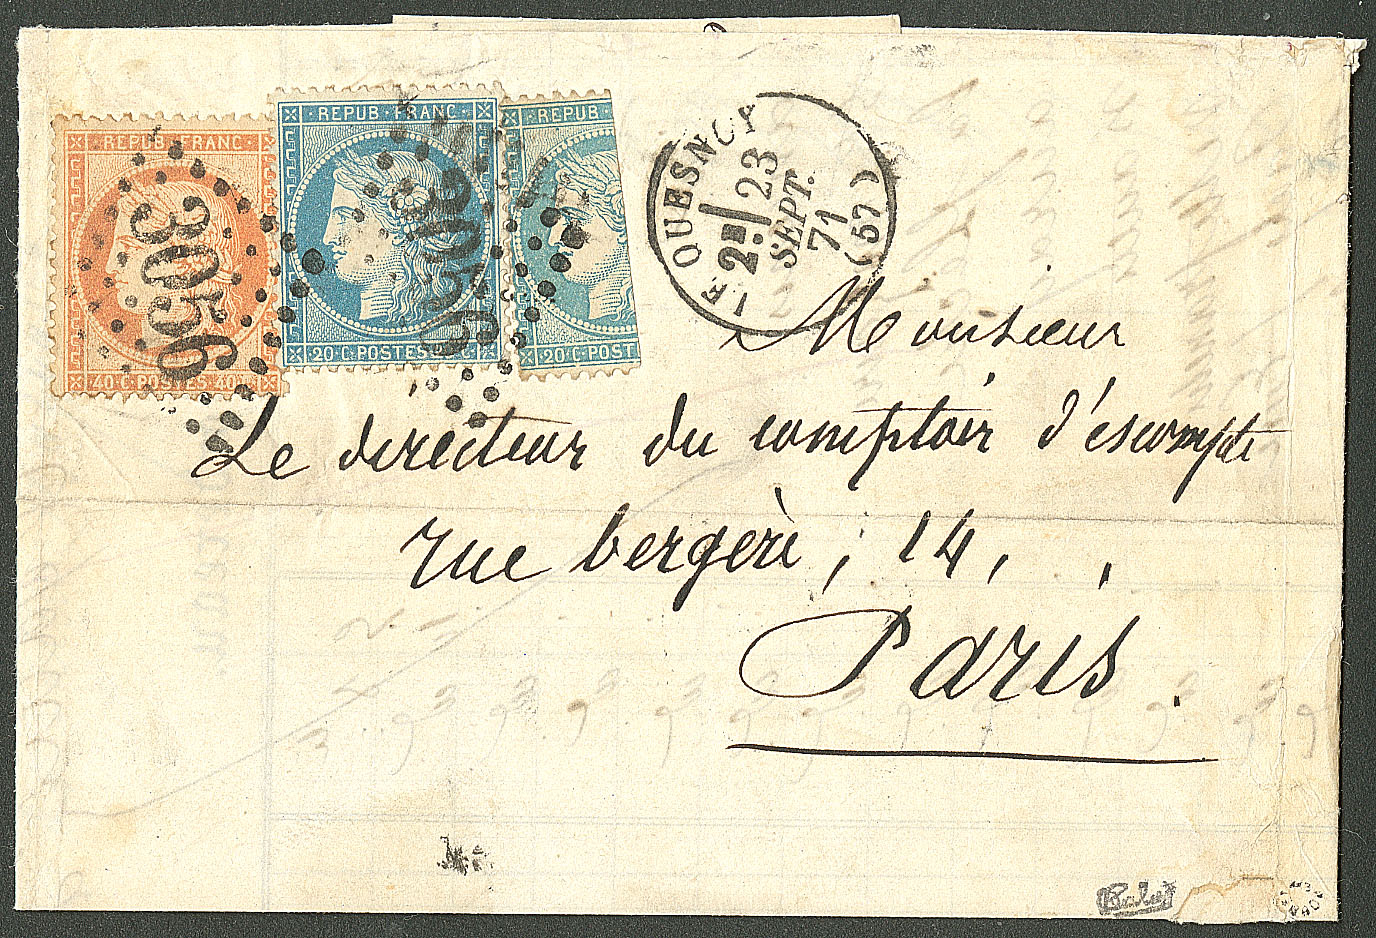 REPUB FRANC
3056
40 C POSTES 40 C
REPUB FRANC
3056
20 C POSTES
REPUB
20 C POST
LE QUESNOY
2E
23
SEPT.
71
(57)
Monsieur
Le directeur du comptoir d'escompte
rue bergère, 14,
Paris.